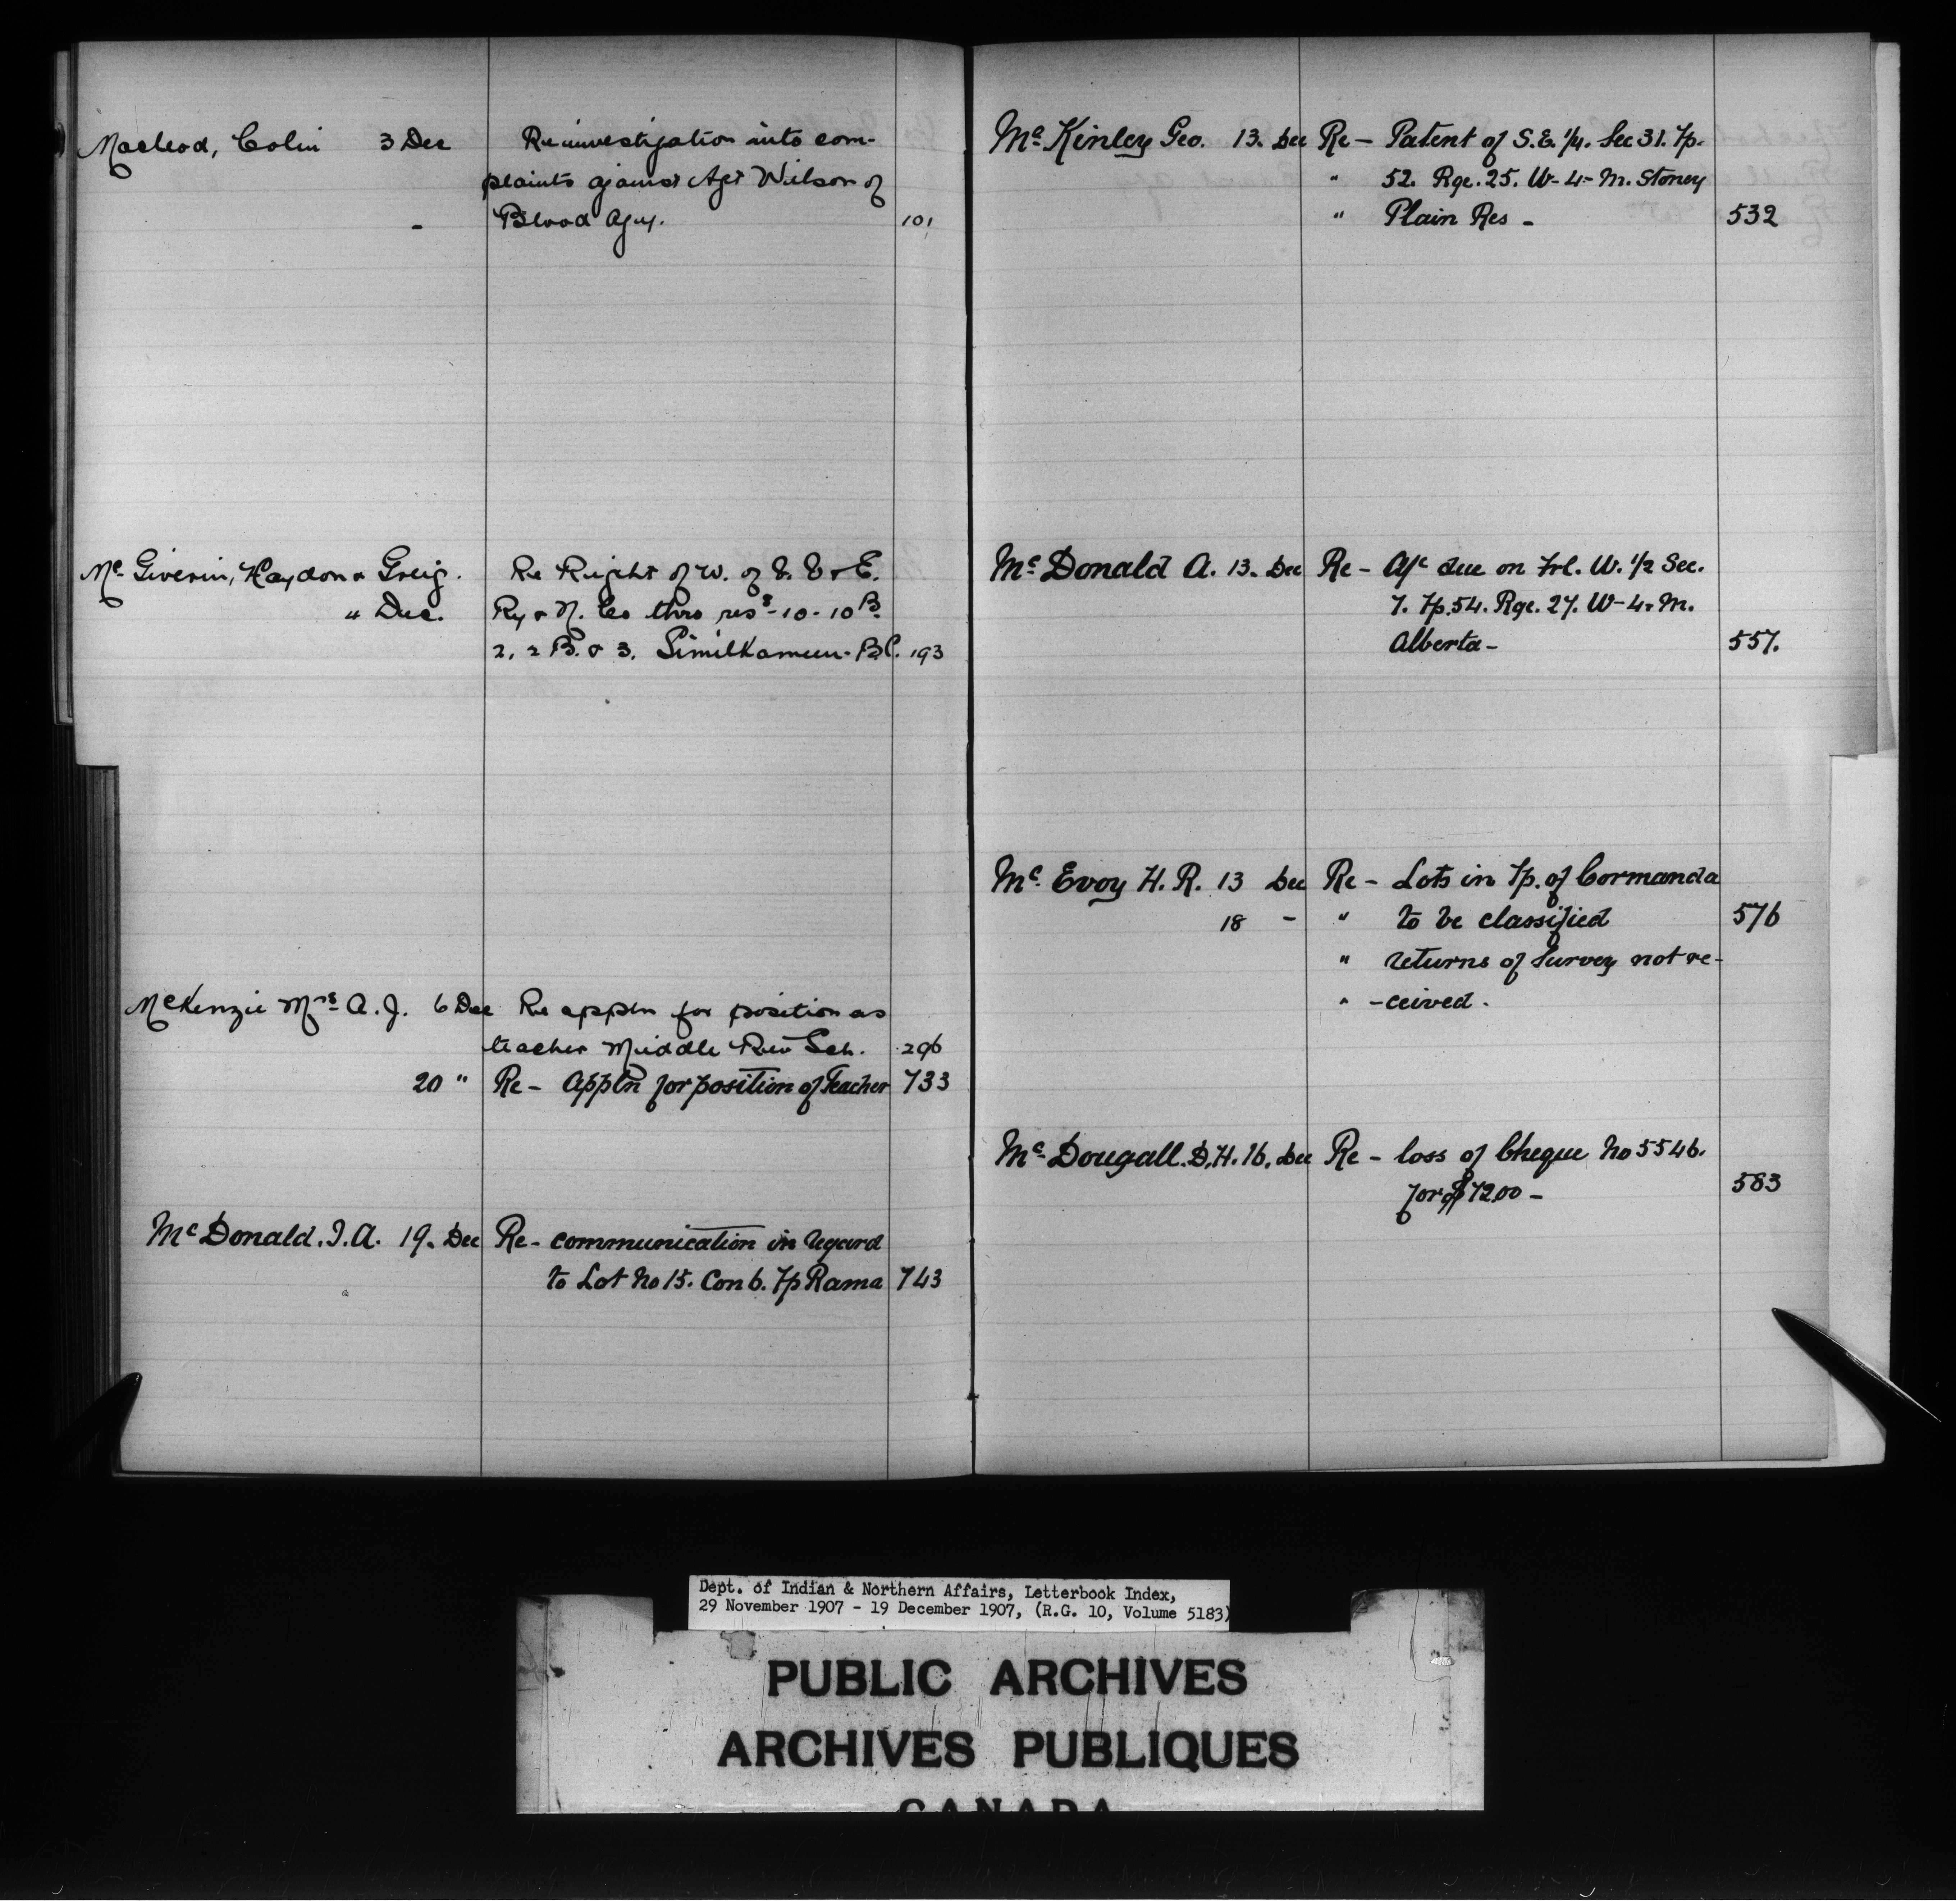 Macleod, Colin 3 Dec Re investigation into com-
plaints against Agt Wilson of
- Blood Agcy. 101
Mc Giverin, Haydon & Greig. Re Right of W. of V. V & E.
" Dec. Ry & N. Co thro ress - 10 - 10 B.
2, 2 B. & 3. Similkameen. B.C. 193
McKenzie Mrs A. J. 6 Dec Re appln for position as
teacher Middle Riv Sch. 296
20 " Re - Appln for position of Teacher 733
Mc Donald. J. A. 19. Dec Re - communication in regard
to Lot No 15. Con 6. Tp Rama 743
Mc Kinley Geo. 13. Dec Re - Patent of S.E. 1/4. Sec 31. Tp.
" 52. Rge. 25. W - 4 - M. Stoney
" Plain Res - 532
Mc Donald A. 13. Dec Re - A/c due on Frl. W. 1/2 Sec.
7. Tp. 54. Rge. 27. W - 4 - M.
Alberta - 557.
Mc Evoy H. R. 13 Dec Re - Lots in Tp. of Cormanda
18 - " to be classified 576
" returns of Survey not re-
" -ceived.
Mc Dougall. D. H. 16. Dec Re - loss of Cheque No 5546.
for $72.00 - 583
Dept. of Indian & Northern Affairs, Letterbook Index,
29 November 1907 - 19 December 1907, (R.G. 10, Volume 5183)
PUBLIC ARCHIVES
ARCHIVES PUBLIQUES
CANADA